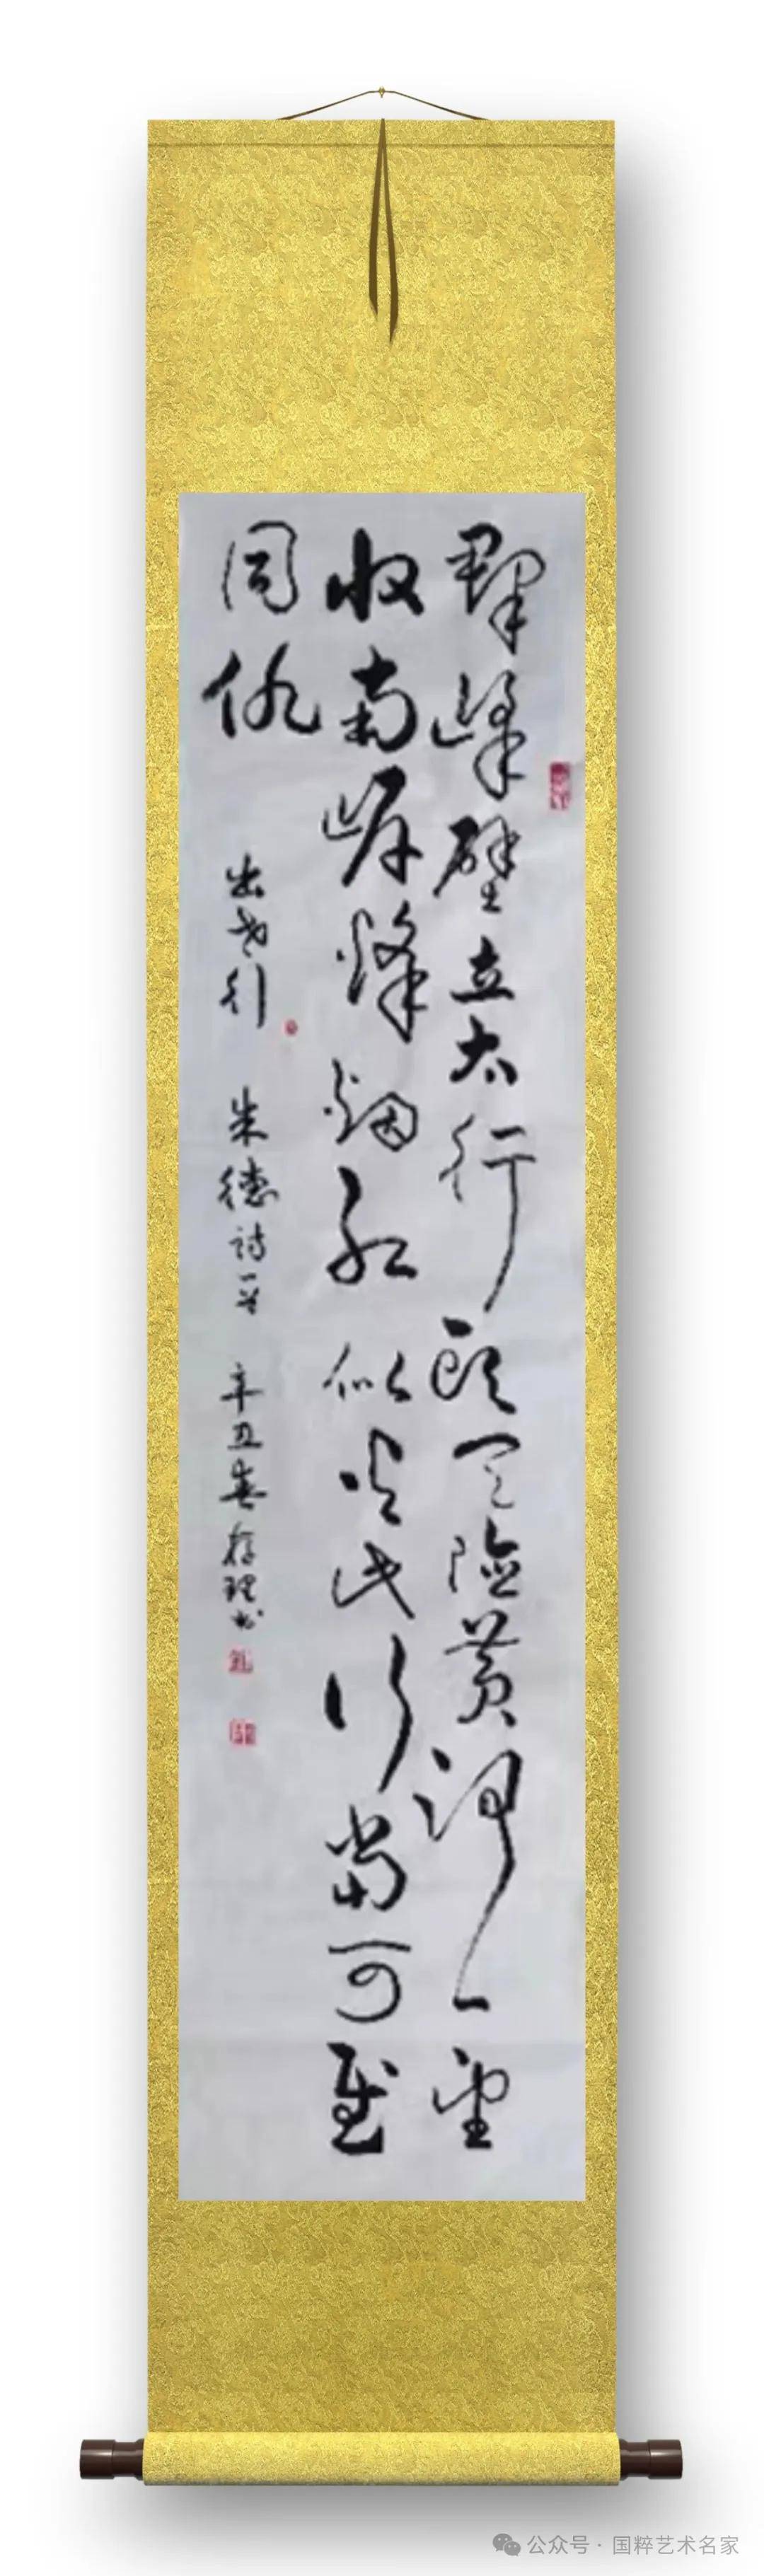 群峰壁立太行頭天險黄河一望
收兩岸烽烟紅似火此行當可慰
同仇 出太行 朱德詩一首 辛丑春存理书
公众号 · 国粹艺术名家